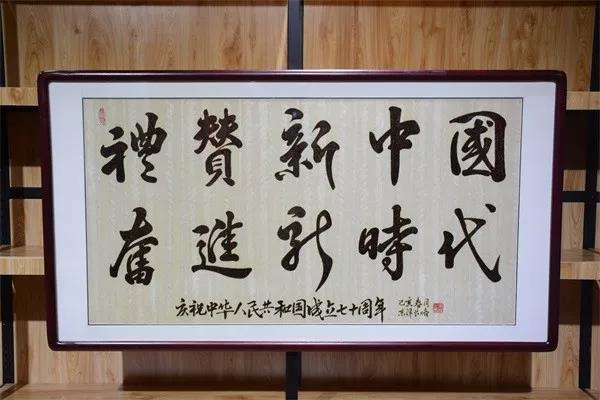 禮贊新中國
奮進新時代
庆祝中华人民共和国成立七十周年
己亥春月